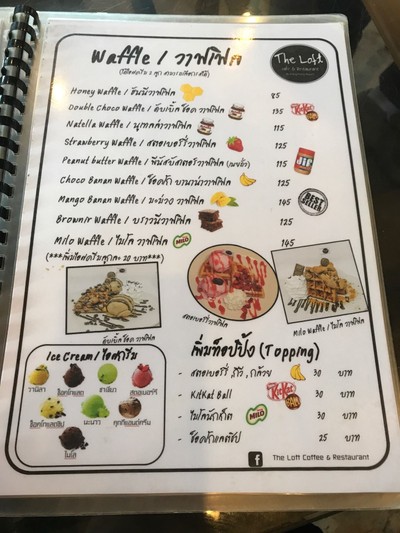 Waffle / วาฟเฟิล
The Loft
Honey Waffle / ฮันนี่วาฟเฟิล 95
Double Choco Waffle / ดับเบิ้ลช็อค วาฟเฟิล 135 KitKat
Natella Waffle / นูเทลล่าวาฟเฟิล 115
Strawberry Waffle / สตอเบอร์รี่วาฟเฟิล 125
Peanut butter Waffle / พีนัสบัสเตอร์วาฟเฟิล 115 Jif
Choco Banan Waffle / ช็อคโก้ บานาน่าวาฟเฟิล 125
Mango Banan Waffle / มะม่วง วาฟเฟิล 145 BEST SELLER
Brownir Waffle / บราวนี่วาฟเฟิล 125
Milo Waffle / ไมโล วาฟเฟิล MILO 145
(***เพิ่มไอศครีมลูกละ 20 บาท***)
ดับเบิ้ลช็อค วาฟเฟิล
สตอเบอรี่วาฟเฟิล
Milo Waffle / ไมโล วาฟเฟิล
Ice Cream / ไอศครีม
วานิลา ช็อคโกแลต ชาเขียว สตอเบอร์รี่
ช็อคโกแลตชิป มะนาว คุกกี้แอนด์ครีม
ไมโล
เพิ่มท็อปปิ้ง (Topping)
- สตอเบอรี่ , กีวี , กล้วย 30 บาท
- KitKat Ball KitKat 30 บาท
- ไมโลนักเก็ต MILO 30 บาท
- ช็อคโกแลตชิป 25 บาท
f The Loft Coffee & Restaurant